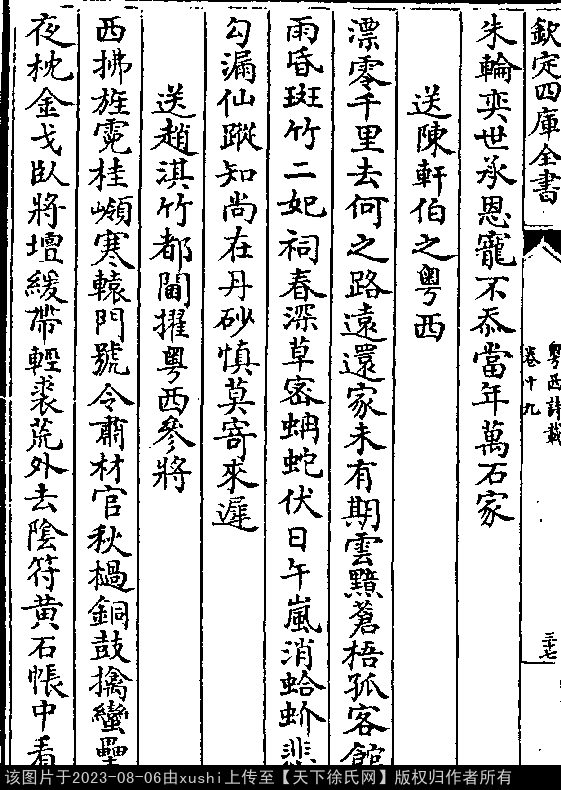 欽定四庫全書
粤西詩載
卷十九
三十七
朱輪奕世承恩寵不忝當年萬石家
送陳軒伯之粤西
漂零千里去何之路遠還家未有期雲黯蒼梧孤客館
雨昏斑竹二妃祠春深草宻蚺蛇伏日午嵐消蛤蚧悲
勾漏仙蹤知尚在丹砂慎莫寄來遲
送趙淇竹都閫擢粤西參將
西拂旌霓桂嶺寒轅門號令肅材官秋檛銅鼓擒蠻壘
夜枕金戈臥將壇緩帶輕裘荒外去陰符黄石帳中看
该图片于2023-08-06由xushi上传至【天下徐氏网】版权归作者所有